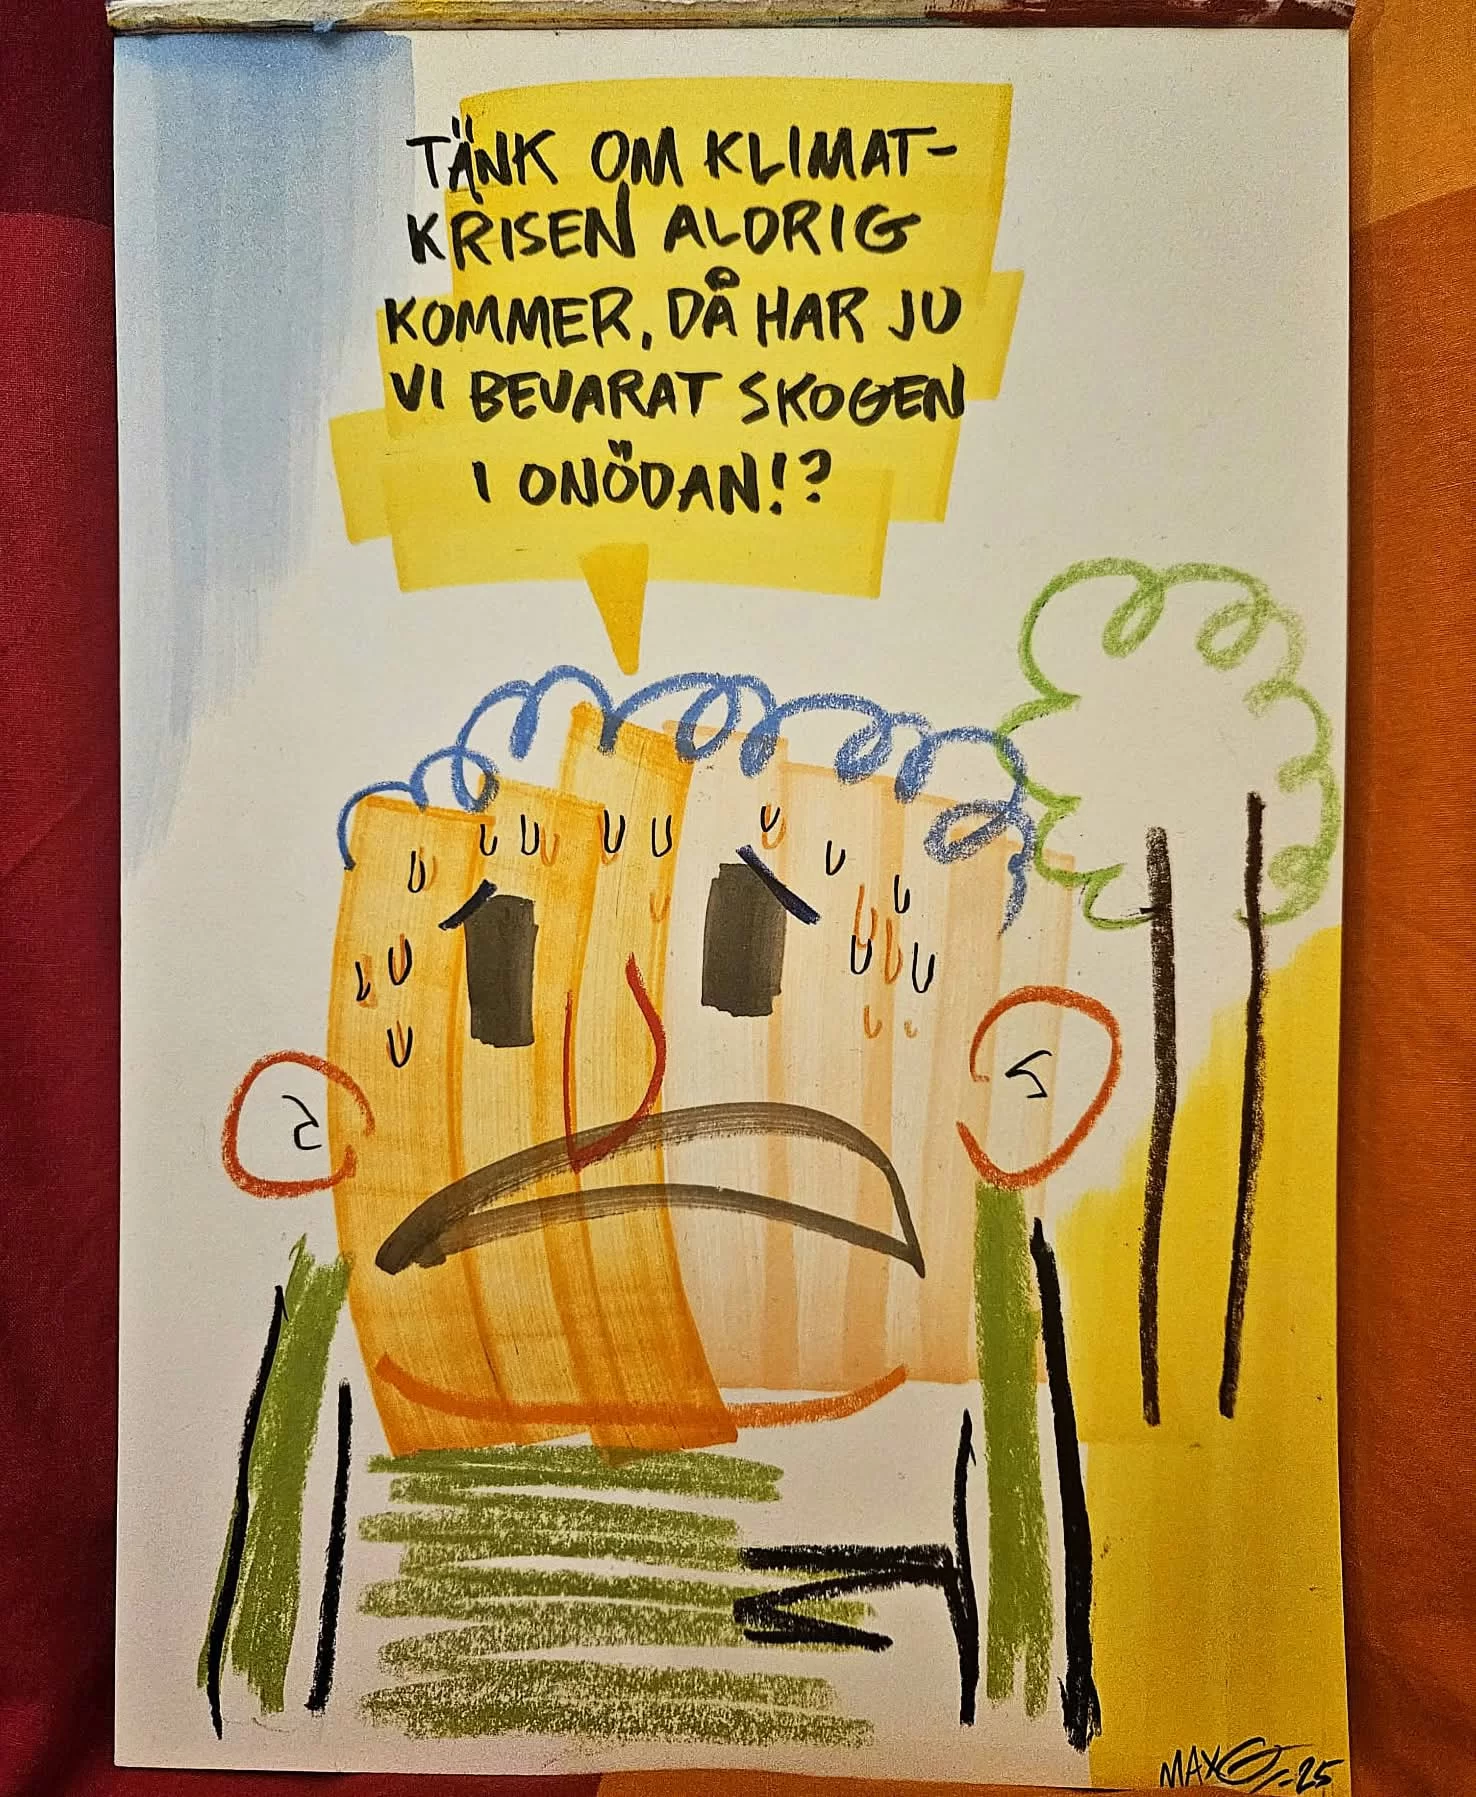 TÄNK OM KLIMAT-
KRISEN ALDRIG
KOMMER, DÅ HAR JU
VI BEVARAT SKOGEN
I ONÖDAN!?
MAXG-25